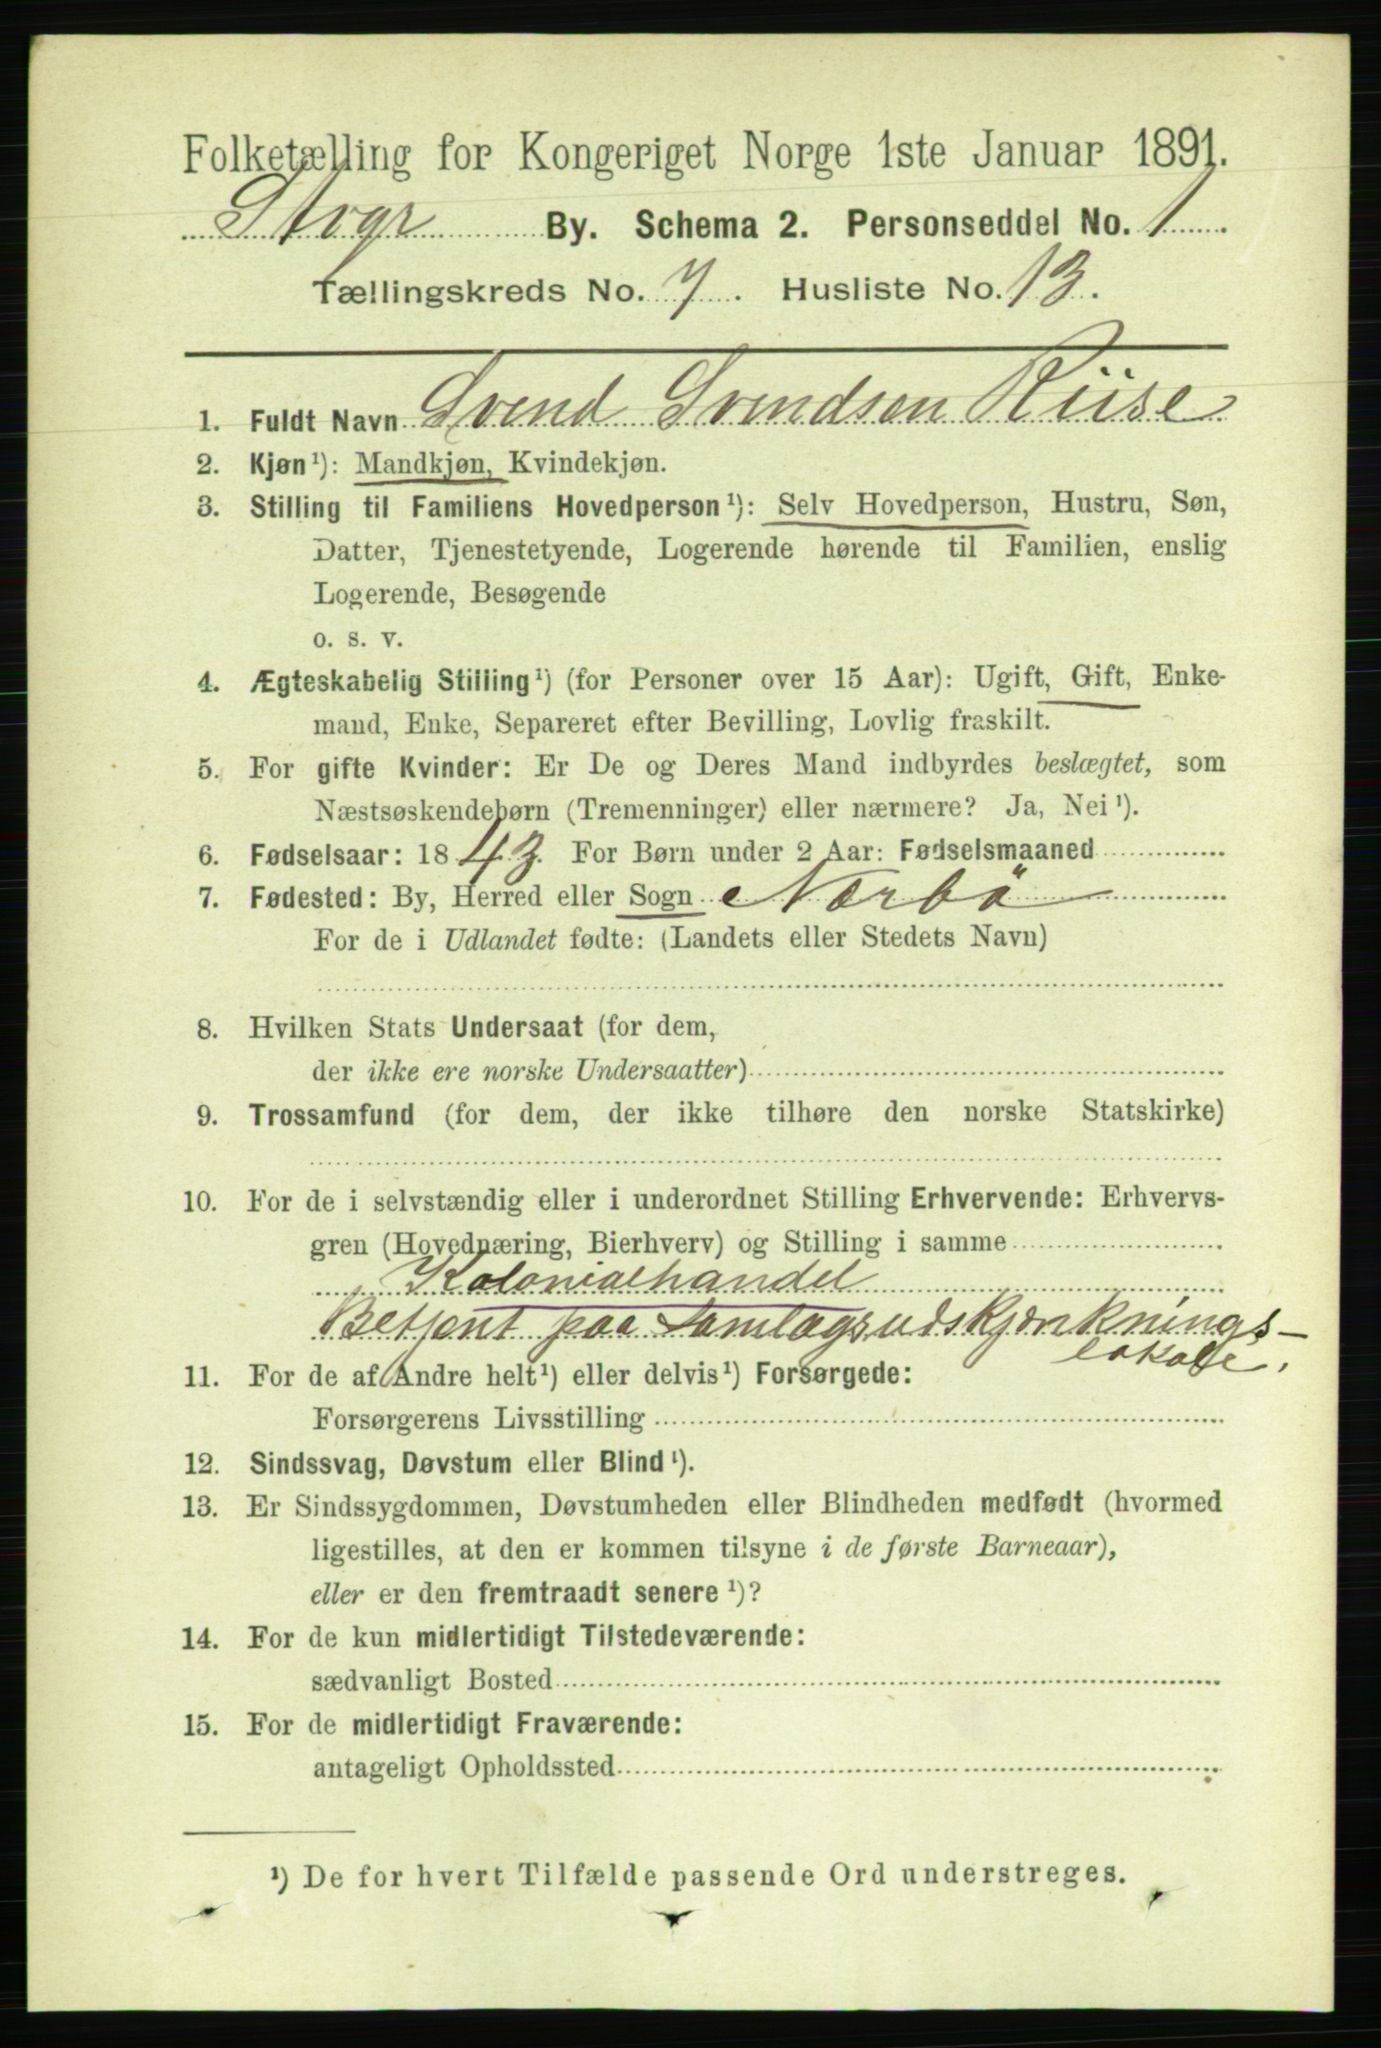 Folketælling for Kongeriget Norge 1ste Januar 1891.
Stvgr By. Schema 2. Personseddel No. 1
Tællingskreds No. 7. Husliste No. 13.
1. Fuldt Navn Svend Svendsen Riise
2. Kjøn¹): Mandkjøn, Kvindekjøn.
3. Stilling til Familiens Hovedperson¹): Selv Hovedperson, Hustru, Søn,
Datter, Tjenestetyende, Logerende hørende til Familien, enslig
Logerende, Besøgende
o. s. v.
4. Ægteskabelig Stilling¹) (for Personer over 15 Aar): Ugift, Gift, Enke-
mand, Enke, Separeret efter Bevilling, Lovlig fraskilt.
5. For gifte Kvinder: Er De og Deres Mand indbyrdes beslægtet, som
Næstsøskendebørn (Tremenninger) eller nærmere? Ja, Nei¹).
6. Fødselsaar: 1843. For Børn under 2 Aar: Fødselsmaaned
7. Fødested: By, Herred eller Sogn Nærbö
For de i Udlandet fødte: (Landets eller Stedets Navn)
8. Hvilken Stats Undersaat (for dem,
der ikke ere norske Undersaatter)
9. Trossamfund (for dem, der ikke tilhøre den norske Statskirke)
10. For de i selvstændig eller i underordnet Stilling Erhvervende: Erhvervs-
gren (Hovednæring, Bierhverv) og Stilling i samme
Kolonialhandel
Betjent paa Samlagsudskjænknings-
lokale.
11. For de af Andre helt¹) eller delvis¹) Forsørgede:
Forsørgerens Livsstilling
12. Sindssvag, Døvstum eller Blind¹).
13. Er Sindssygdommen, Døvstumheden eller Blindheden medfødt (hvormed
ligestilles, at den er kommen tilsyne i de første Barneaar),
eller er den fremtraadt senere¹)?
14. For de kun midlertidigt Tilstedeværende:
sædvanligt Bosted
15. For de midlertidigt Fraværende:
antageligt Opholdssted
¹) De for hvert Tilfælde passende Ord understreges.